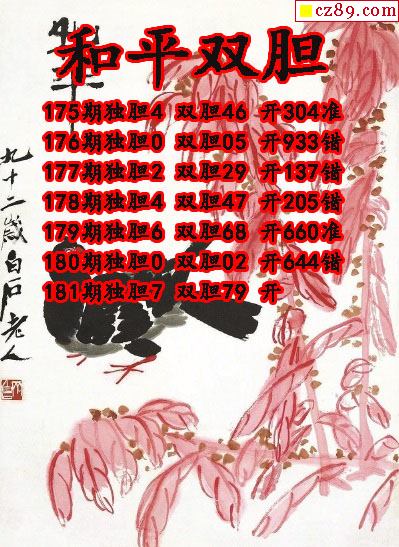 cz89.com
和平双胆
175期独胆4 双胆46 开304准
176期独胆0 双胆05 开933错
177期独胆2 双胆29 开137错
178期独胆4 双胆47 开205错
179期独胆6 双胆68 开660准
180期独胆0 双胆02 开644错
181期独胆7 双胆79 开
九十二岁白石老人